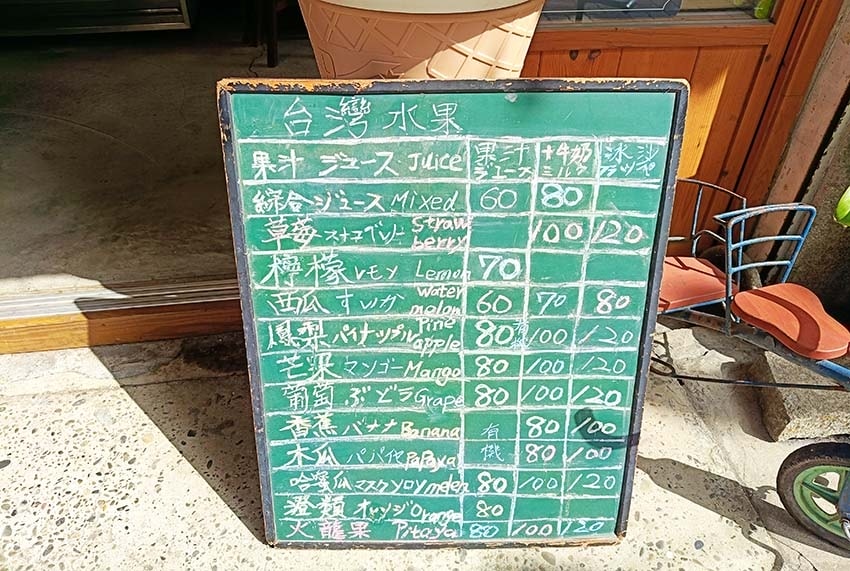 台灣水果
果汁 ジュース Juice 果汁 ジュース +牛奶 ミルク 冰沙
綜合 ジュース Mixed 60 80
草莓 Strawberry 100 120
檸檬 レモン Lemon 70
西瓜 すいか Water melon 60 70 80
鳳梨 パイナップル Pine apple 80 有機 100 120
芒果 マンゴー Mango 80 100 120
葡萄 ぶどう Grape 80 100 120
香蕉 バナナ Banana 有機 80 100
木瓜 パパイヤ Papaya 80 100
哈蜜瓜 melen 80 100 120
澄類 オレンジ Orange 80
火龍果 Pitaya 80 100 120